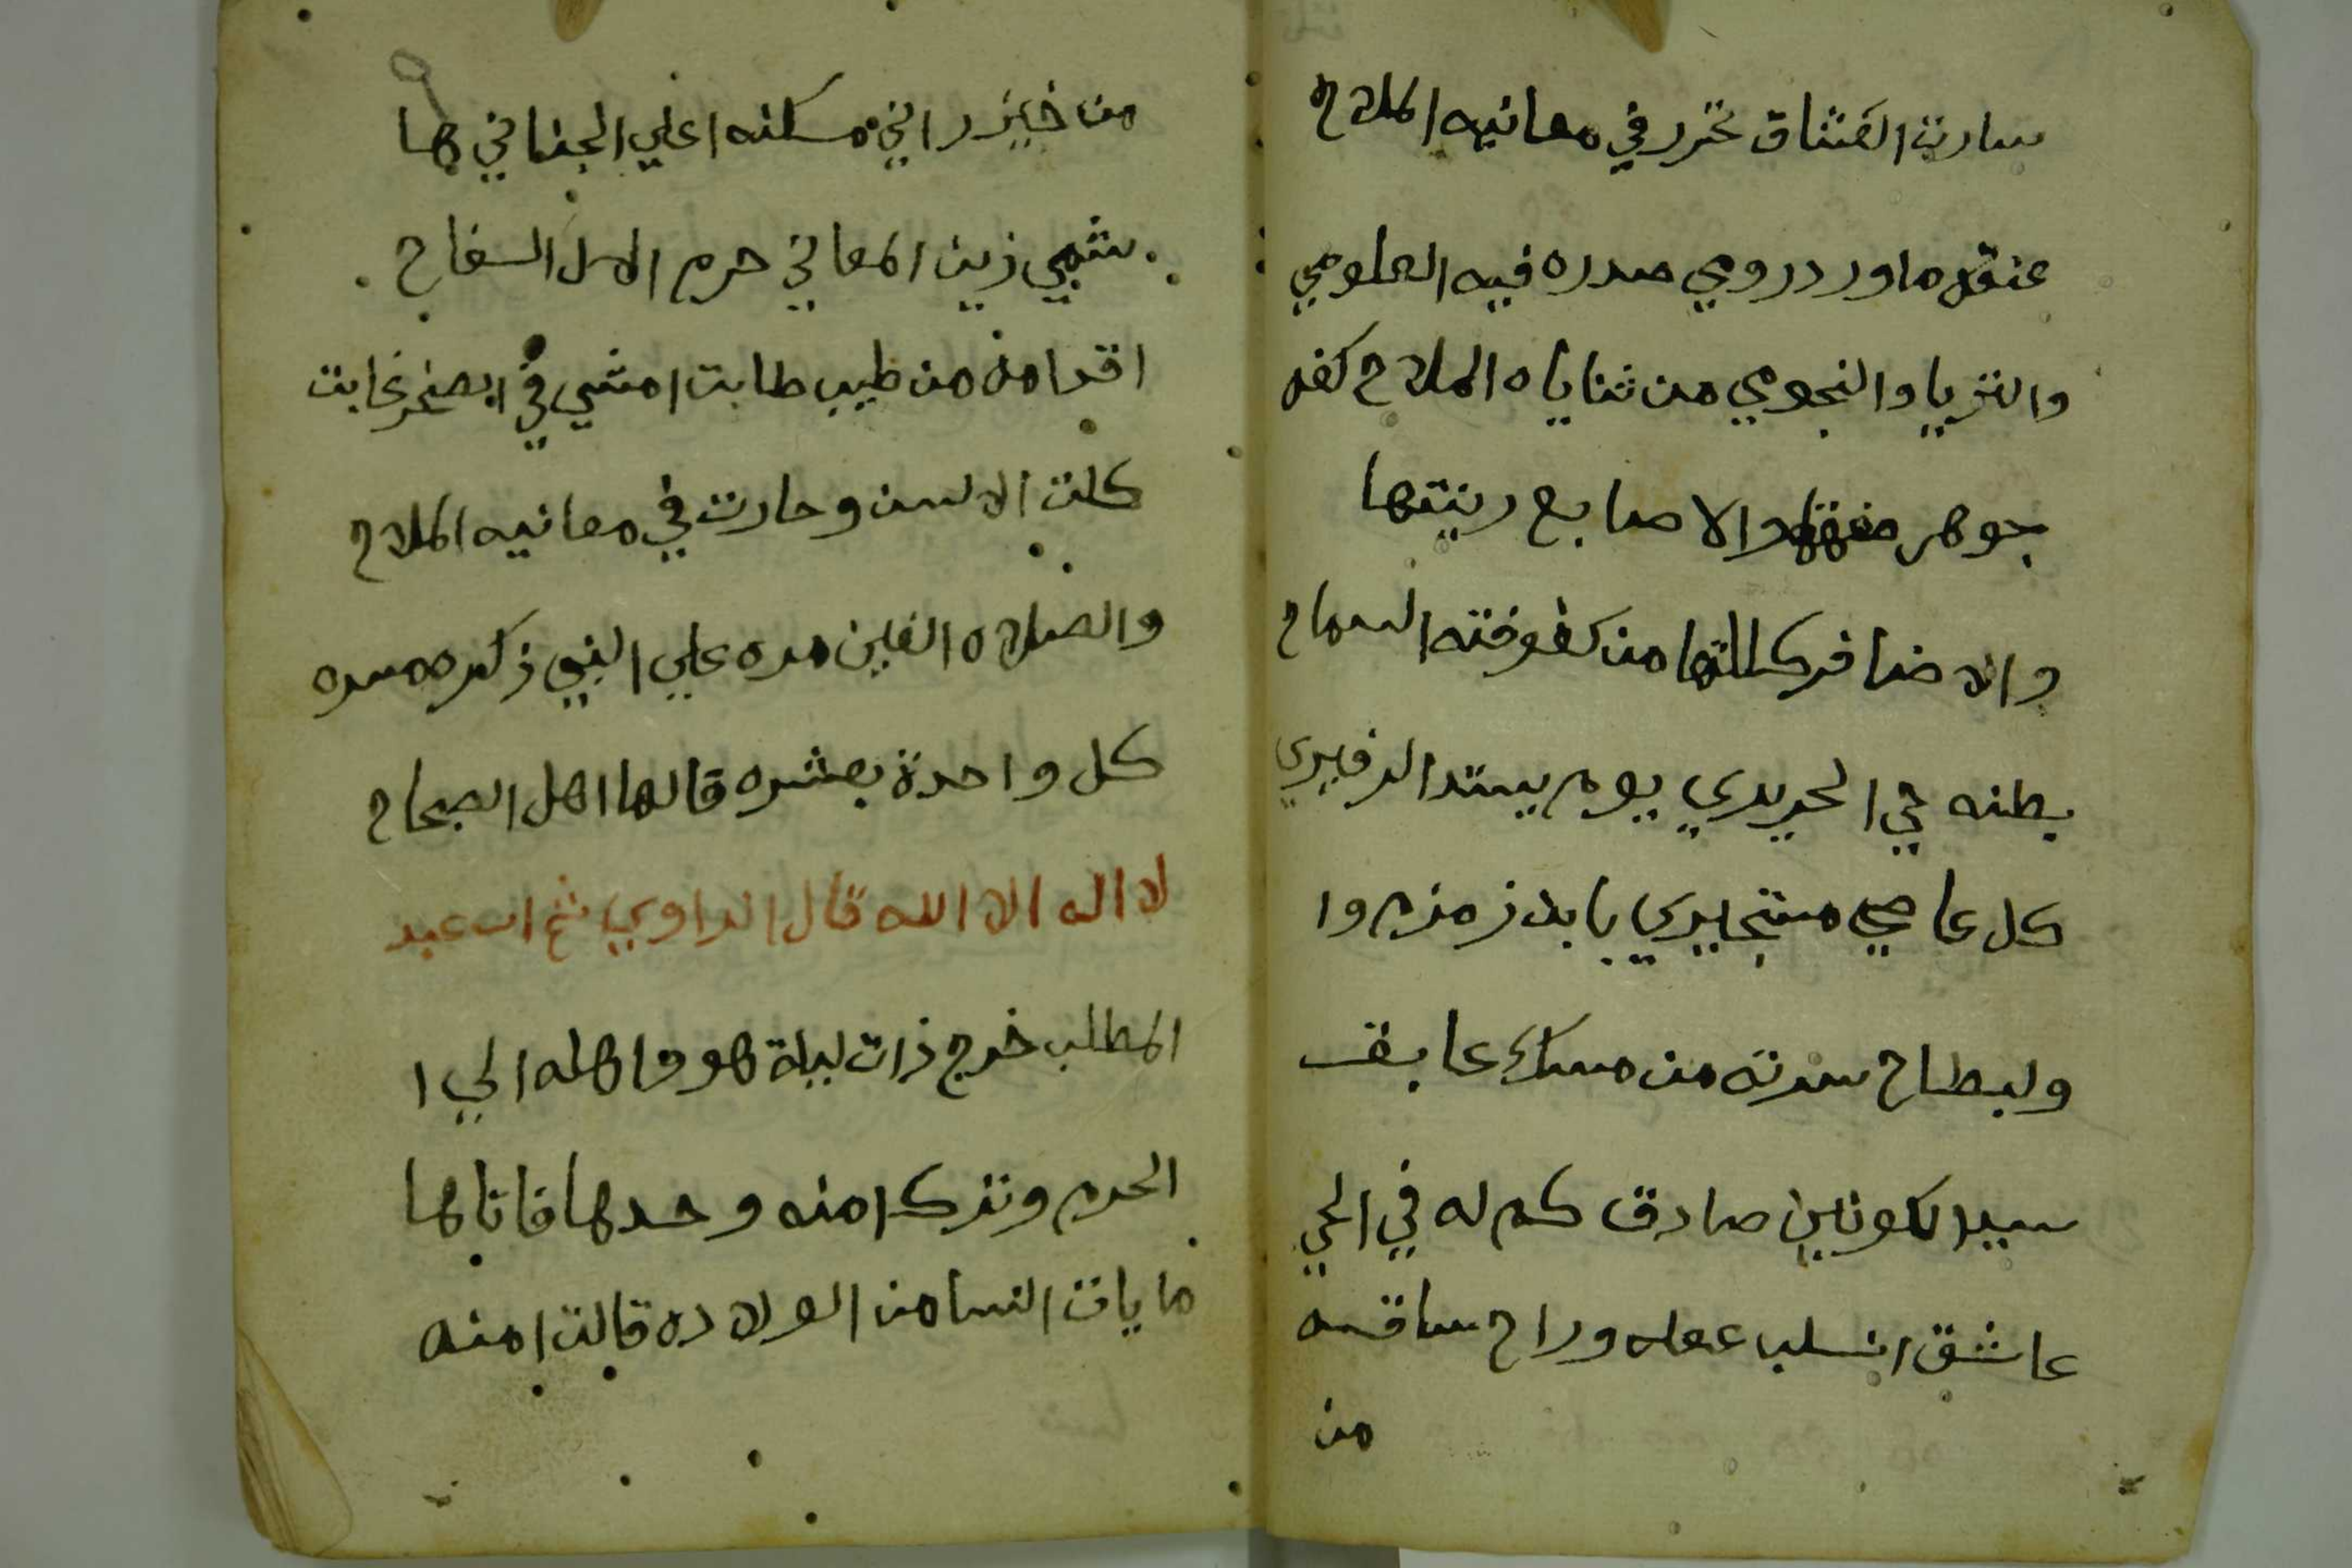 سارت العشاق تخبر في معانيه الملاح
عنقه ماورد رومي صدره فيه العلومي
والتريا والنجومي من ثناياه الملاح كفه
جوهر والاصابع رينتها
والاضافر كللتها من كفوفته السماح
بطنه في الحريري يوم يستد الزفيري
كل عاصي مستجيري يابد زمزم وا
ولبطاح سرته من مسك عابق
سيد الكونين صادق كم له في الحي
عاشق انسلب عقله وراح ساقه
من
من خيزراني مسكنه اعلي الجناني ها
شمي زين المعاني حرم السفاح
اقدامه من طيب طابت امشي في الصخر غابت
كلت الالسن وحارت في معانيه الملاح
والصلاه الفين مره علي النبي ذكره مسره
كل واحدة بعشره قالها اهل الصحاح
لا اله الا الله قال الراوي ثم ان عبد
المطلب خرج ذات ليلة هو واهله الي ا
الحرم وترك امنه وحدها فاتاها
ما يات النسا من الولاده قالت امنه